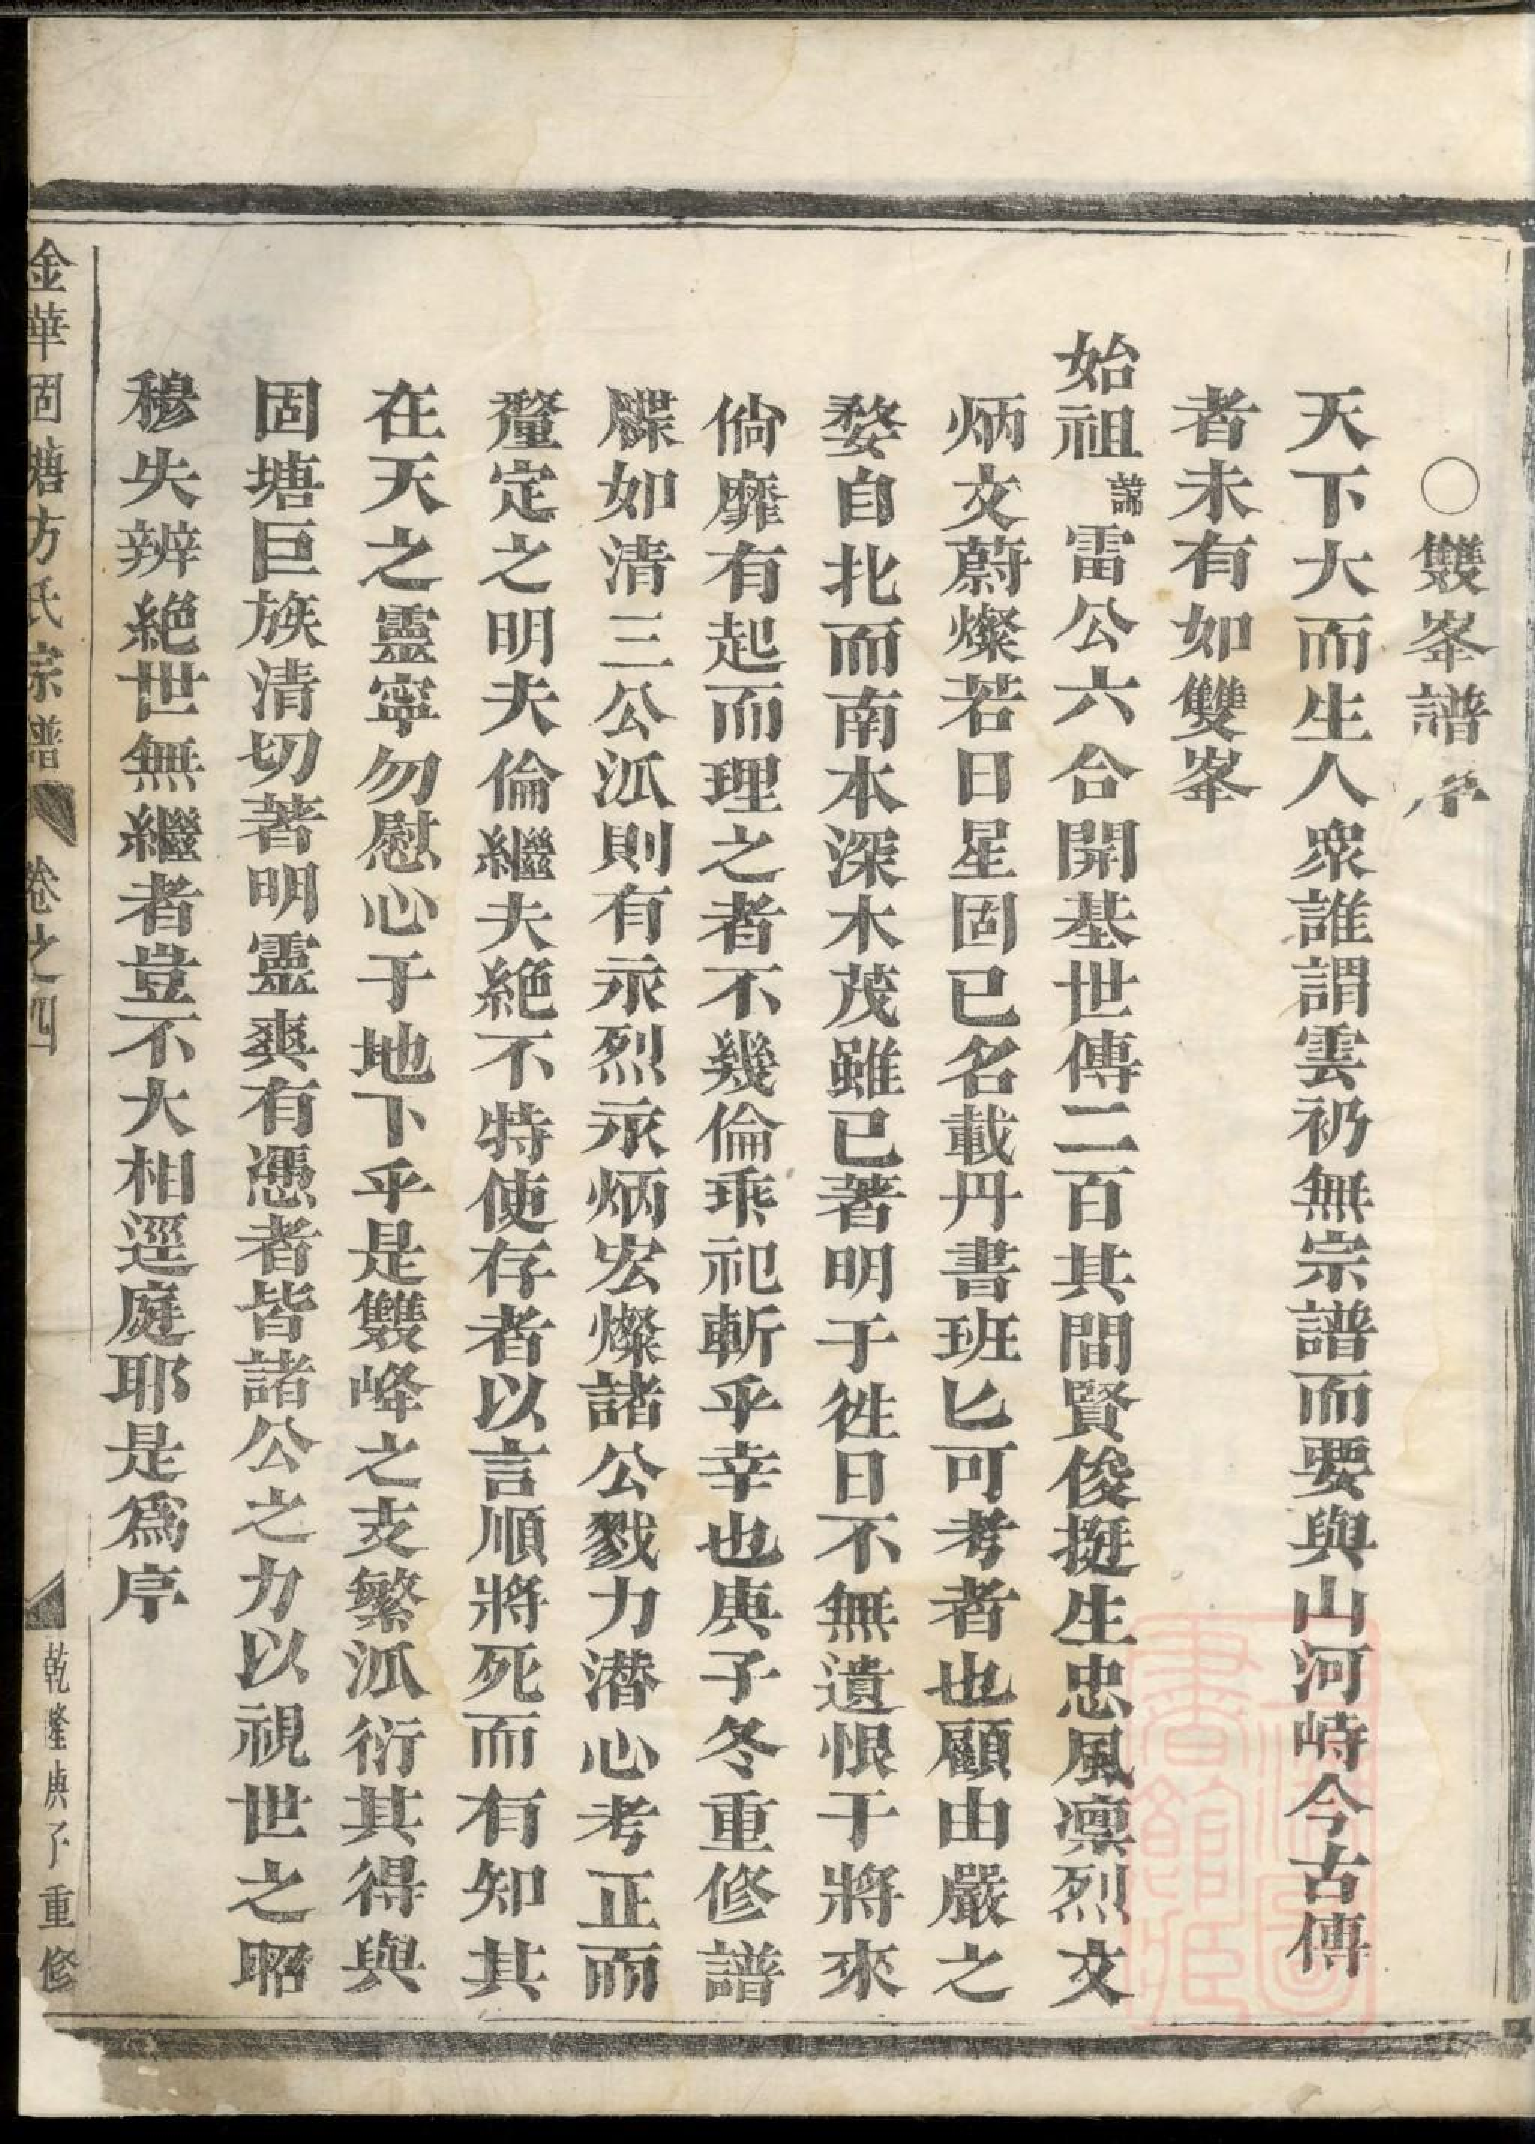 ○雙峯譜序
天下大而生人衆誰謂雲礽無宗譜而要與山河峙今古傳
者未有如雙峯
始祖諱雷公六合開基世傳二百其間賢俊挺生忠風凛烈文
炳文蔚燦若日星固已名載丹書班匕可考者也顧由嚴之
婺自北而南本深木茂雖已著明于徃日不無遺恨于將來
倘靡有起而理之者不幾倫乖祀斬乎幸也庚子冬重修譜
牒如清三公派則有永烈永炳宏燦諸公戮力潜心考正而
釐定之明夫倫繼夫絶不特使存者以言順將死而有知其
在天之靈寧勿慰心于地下乎是雙峰之支繁派衍其得與
固塘巨族清切著明靈爽有憑者皆諸公之力以視世之昭
穆失辨絶世無繼者豈不大相逕庭耶是爲序
金華固塘方氏宗譜 卷之四 乾隆庚子重修